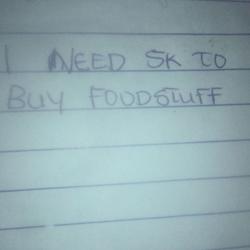 I NEED 5K TO
BUY FOODSTUFF